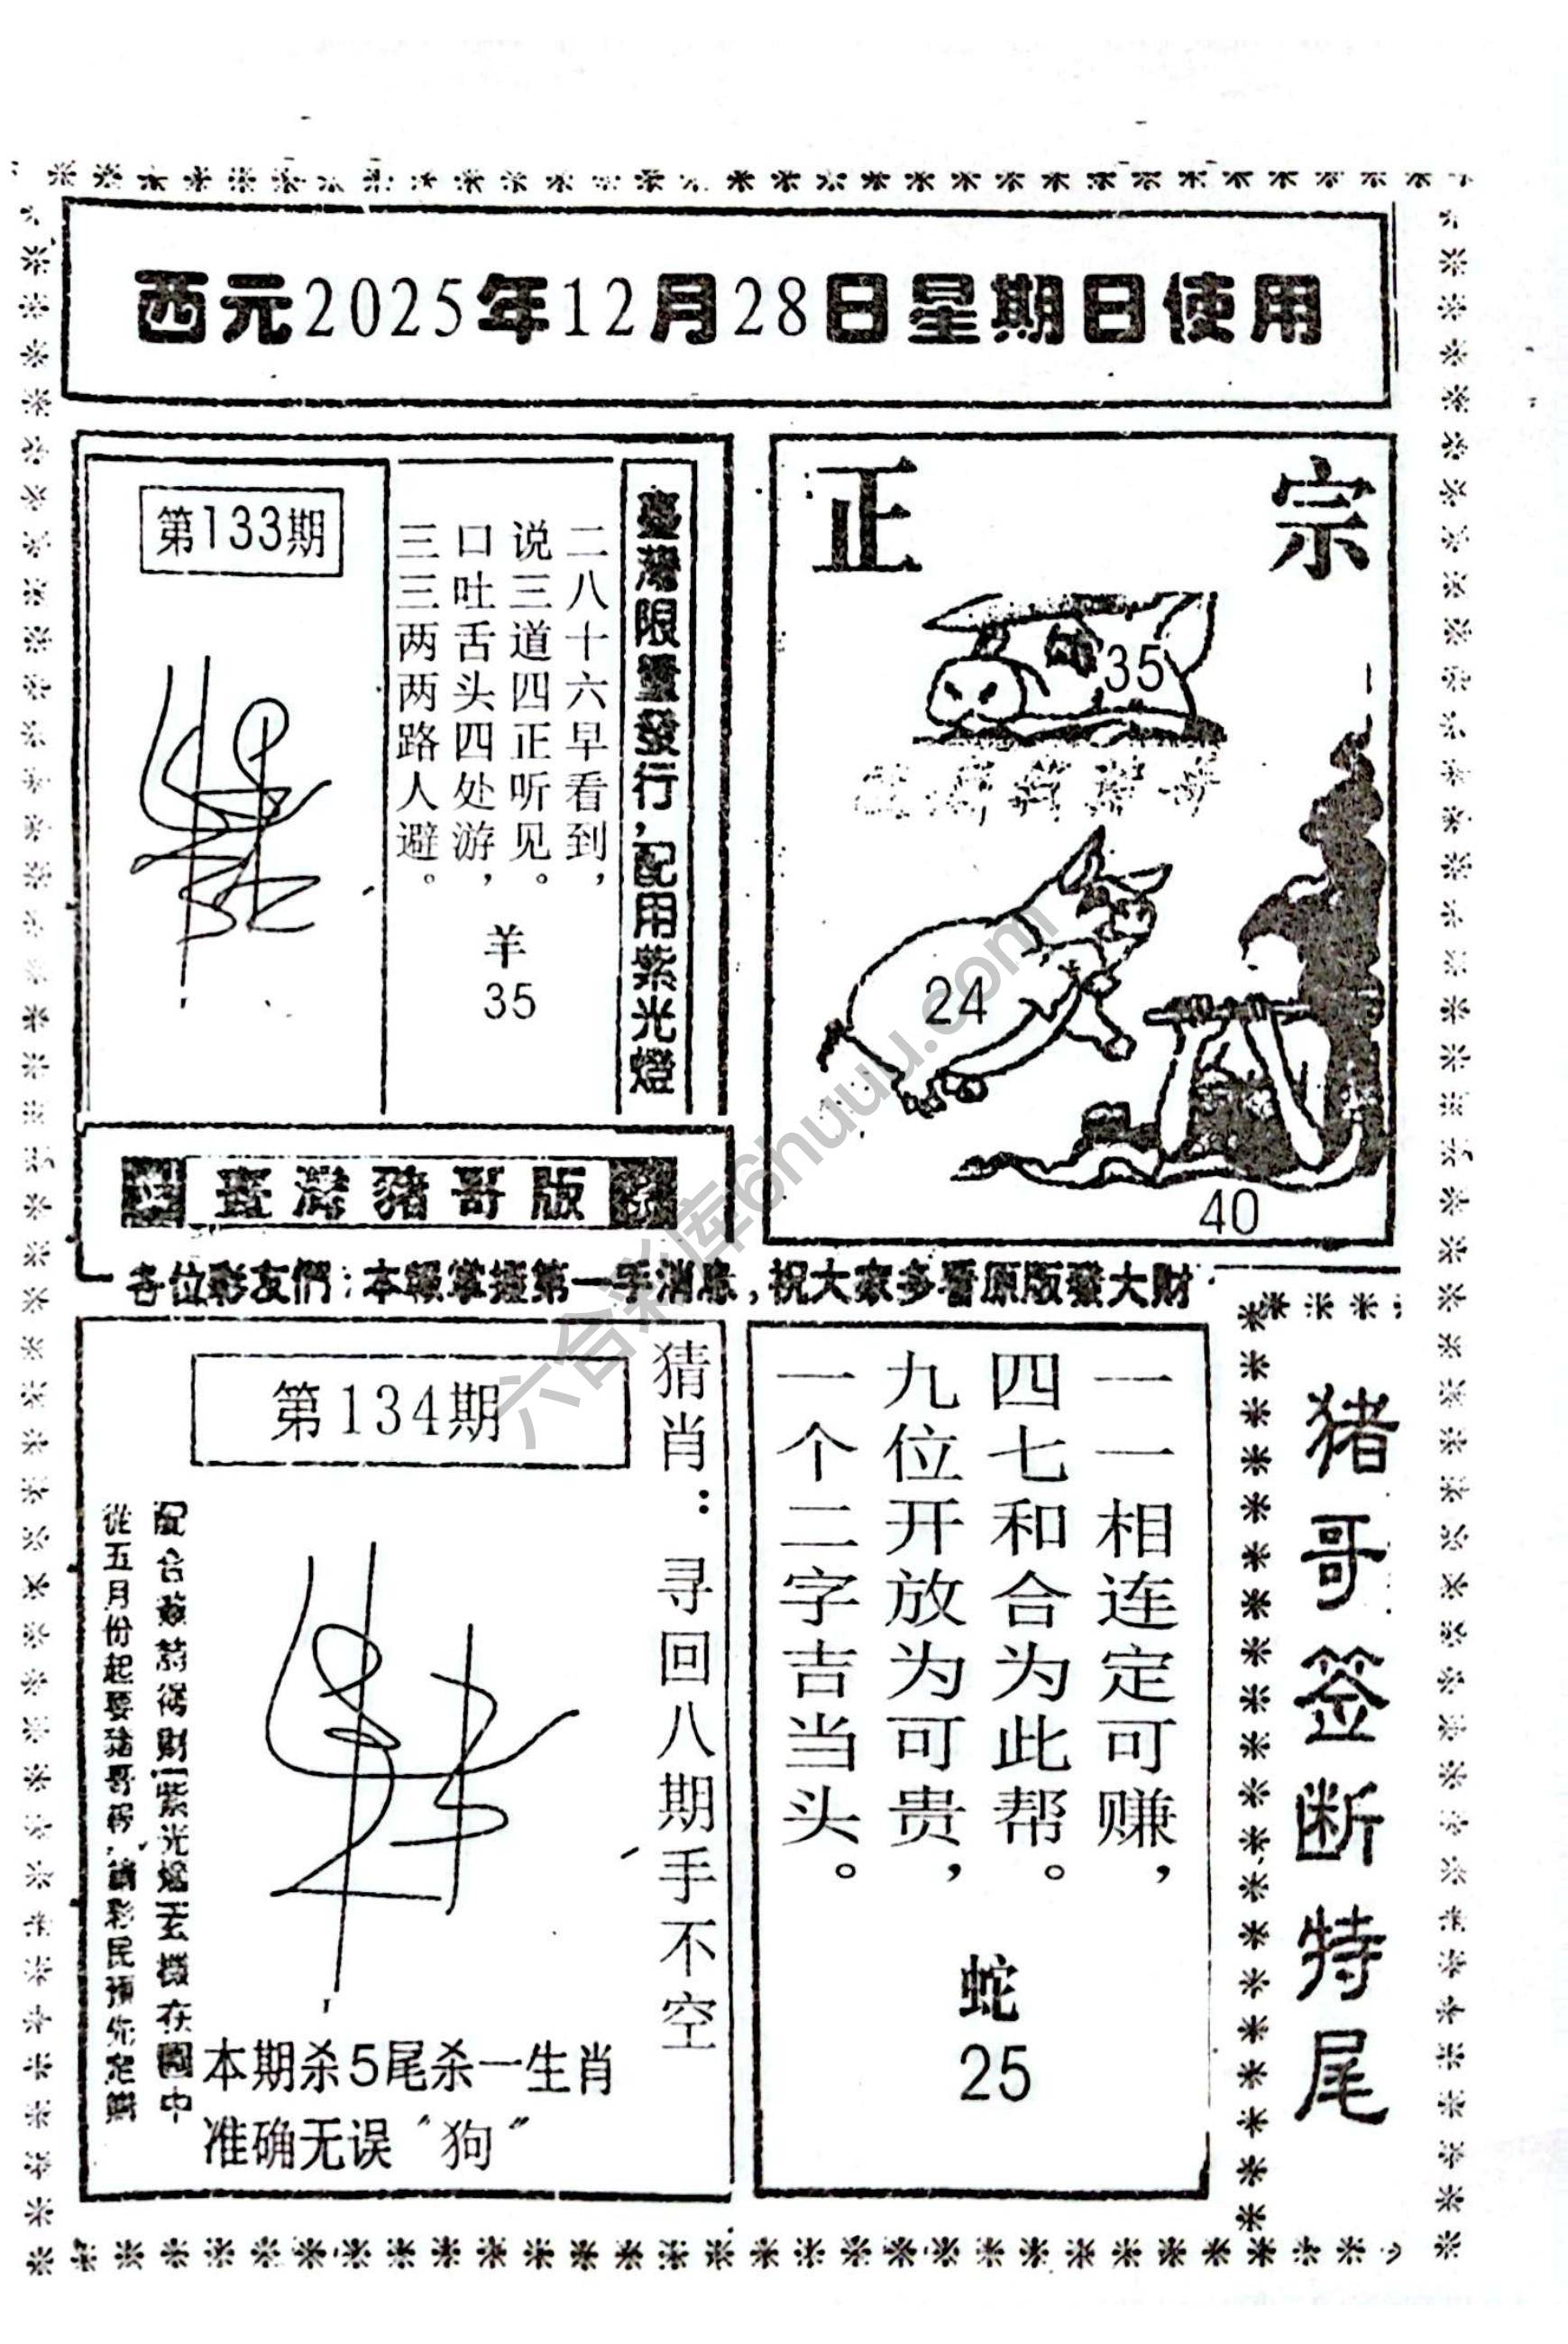 西元2025年12月28日星期日使用
第133期
二八十六早看到，
说三道四正听见。
口吐舌头四处游，
三三两两路人避。
羊
35
臺灣限量發行，配用紫光燈
正宗
35
24
40
臺灣豬哥版
各位彩友們：本報掌握第一手消息，祝大家多看原版發大財
第134期
猜肖：寻回八期手不空
從五月份起要猪哥
彩民預先定購
得財「紫光燈」玄機在圖中
本期杀5尾杀一生肖
准确无误“狗”
一一相连定可赚，
四七和合为此帮。
九位开放为可贵，
一个二字吉当头。
蛇
25
猪哥签断特尾
六合彩库6huuu.com